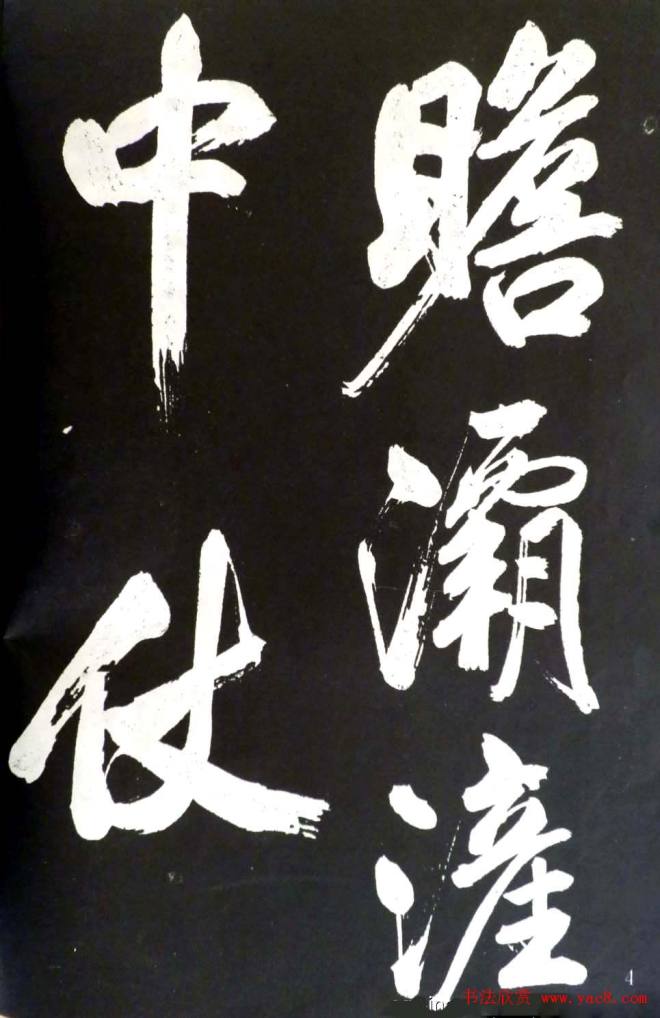 瞻灞滻
中仗
4
书法欣赏 www.yac8.com